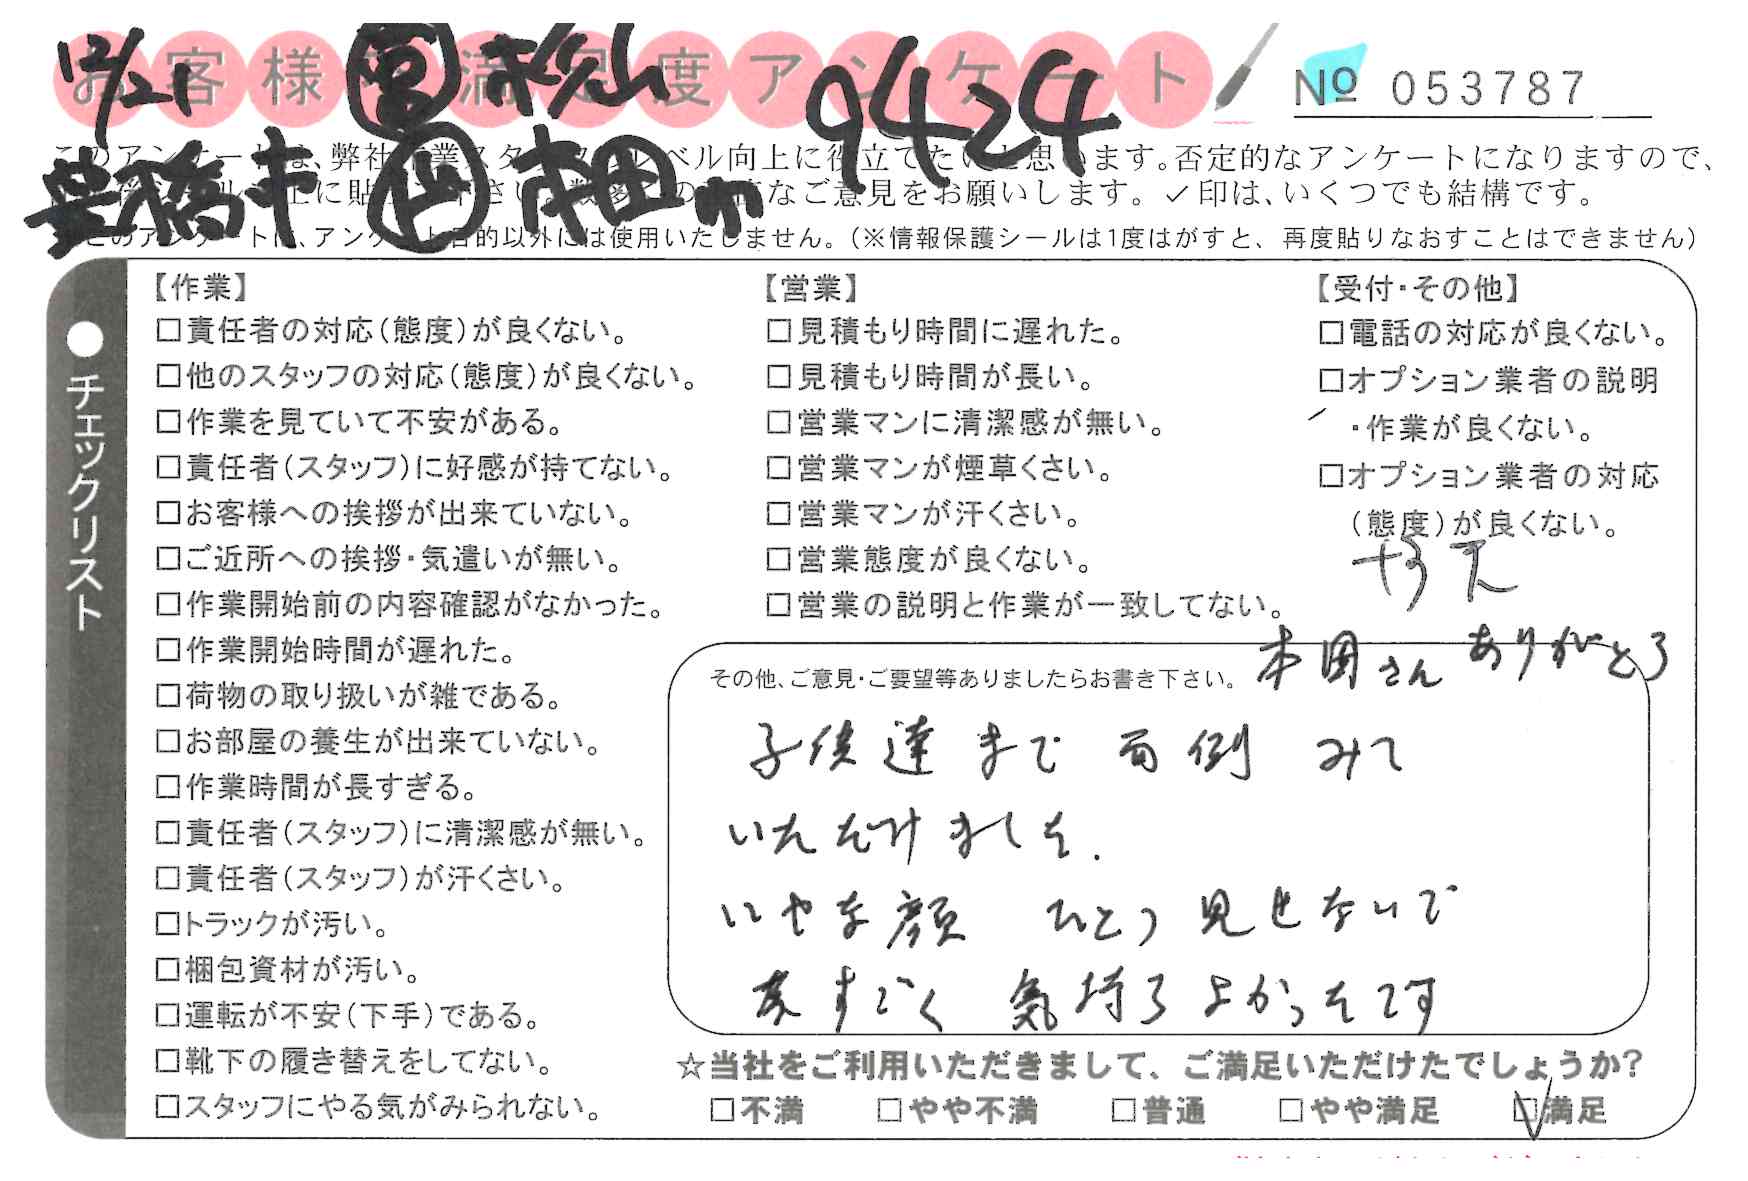 お客様満足度アンケート
12/21 営 松山 9424
№ 053787
豊橋市 本田
このアンケートは、弊社作業スタッフのレベル向上に役立てたいと思います。否定的なアンケートになりますので、
なご意見をお願いします。✓印は、いくつでも結構です。
このアンケートは、アンケート目的以外には使用いたしません。(※情報保護シールは1度はがすと、再度貼りなおすことはできません)
●チェックリスト
【作業】
□責任者の対応(態度)が良くない。
□他のスタッフの対応(態度)が良くない。
□作業を見ていて不安がある。
□責任者(スタッフ)に好感が持てない。
□お客様への挨拶が出来ていない。
□ご近所への挨拶・気遣いが無い。
□作業開始前の内容確認がなかった。
□作業開始時間が遅れた。
□荷物の取り扱いが雑である。
□お部屋の養生が出来ていない。
□作業時間が長すぎる。
□責任者(スタッフ)に清潔感が無い。
□責任者(スタッフ)が汗くさい。
□トラックが汚い。
□梱包資材が汚い。
□運転が不安(下手)である。
□靴下の履き替えをしてない。
□スタッフにやる気がみられない。
【営業】
□見積もり時間に遅れた。
□見積もり時間が長い。
□営業マンに清潔感が無い。
□営業マンが煙草くさい。
□営業マンが汗くさい。
□営業態度が良くない。
□営業の説明と作業が一致してない。
【受付・その他】
□電話の対応が良くない。
□オプション業者の説明
・作業が良くない。
□オプション業者の対応
(態度)が良くない。
その他、ご意見・ご要望等ありましたらお書き下さい。
本田さん ありがとう
子供達まで 面倒 みて
いただけました.
いやな顔 ひとつ 見せないで
すごく 気持ちよかったです
☆当社をご利用いただきまして、ご満足いただけたでしょうか?
□不満 □やや不満 □普通 □やや満足 ☑満足